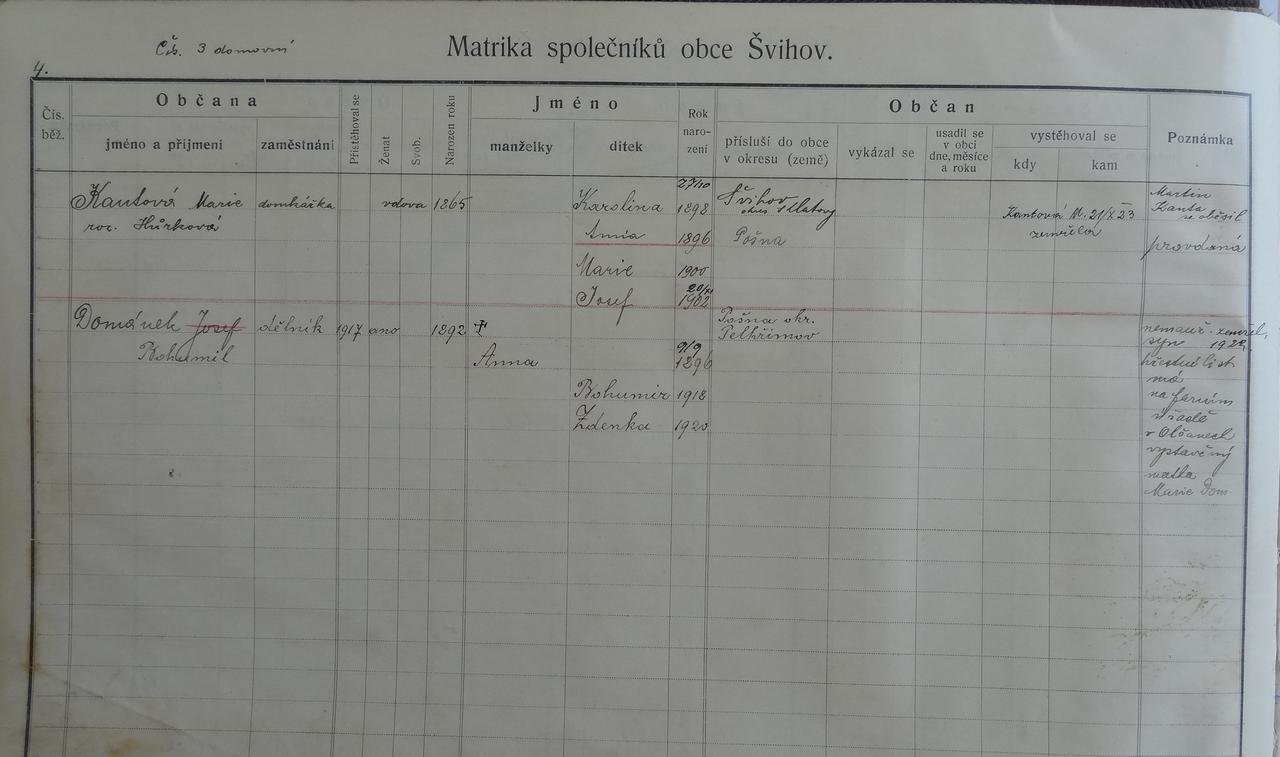 Čís. 3 domovní
Matrika společníků obce Švihov.
4.
Čís. běž.
Občana
jméno a příjmení
zaměstnání
Přistěhoval se
Ženat
Svob.
Narozen roku
Jméno
manželky
dítek
Rok naro- zení
Občan
přísluší do obce v okresu (země)
vykázal se
usadil se v obci dne, měsíce a roku
vystěhoval se
kdy
kam
Poznámka
27/10
Kantová Marie domkářka vdova 1865 Karolina 1898 Švihov
okres
Martin
Kanta
se oběsil
roz. Hůrková
Kantová M. 21/X 23
zemřela
Anna 1896 Pošna provdaná
Marie 1900
20/XI
Josef 1902
Dománek Josef dělník 1917 ano 1892 †
Pošna okr.
Pelhřimov
nemanž.
syn 1922
Bohumil
9/9
Anna 1896
křestní list
má
Bohumir 1918
na farním
úřadě
Zdenka 1920
v Olšanech
vystavěný
matka
Marie Dom